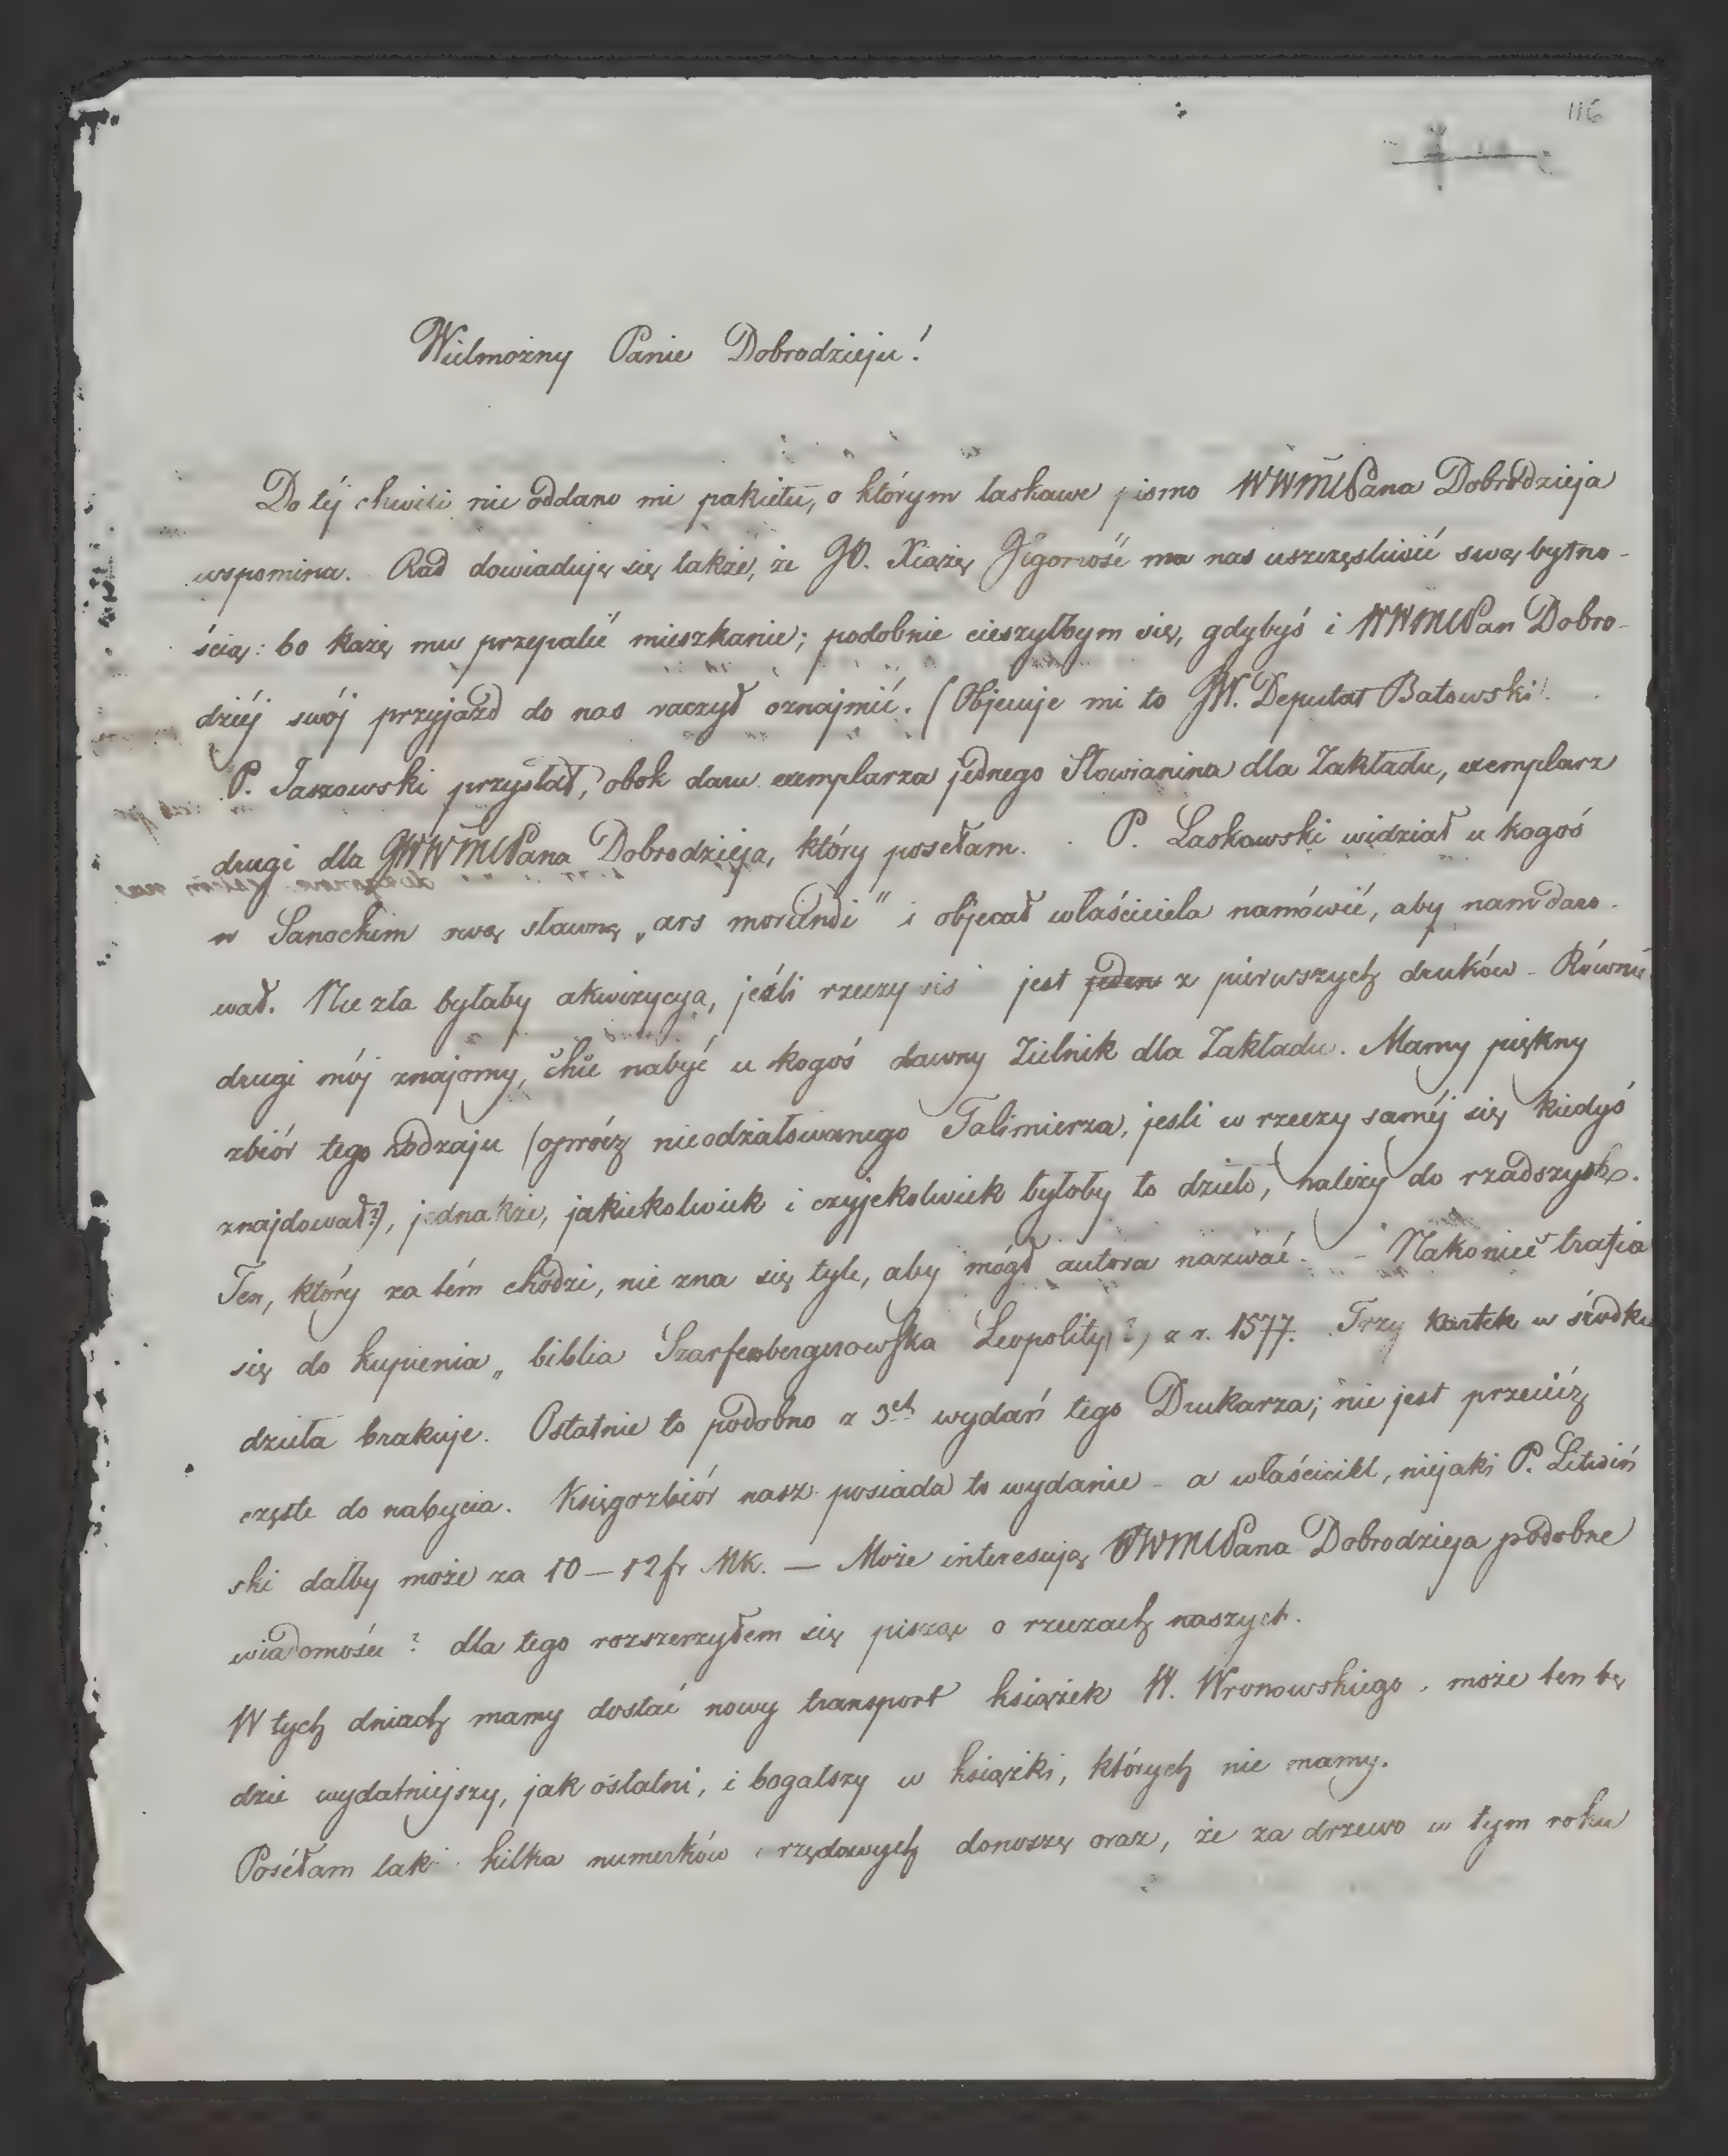 116
Wielmożny Panie Dobrodzieju!
Do téj chwili nie oddano mi pakietu, o którym laskawe pismo WWMWPana Dobrodzieja
wspomina. Rad dowiaduję się także, że JO. Xiążę Jegomość ma nas uszczęsliwić swą bytno-
ścią: bo każę mu przepalić mieszkanie; podobnie cieszyłbym się, gdybyś i WWMWPan Dobro-
dziéj swój przyjazd do nas raczył oznajmić. (Objecuje mi to JW. Deputat Batowski)
P. Jaszowski przysłał, obok daru exemplarza jednego Slowianina dla Zakładu, exemplarz
drugi dla JWWMWPana Dobrodzieja, który posełam. P. Laskowski widział u kogoś
w Sanockim ową sławną „ars moriendi" i objecał właściciela namówić, aby nam daro-
wał. Nie zła byłaby akwizycya, jeśli rzeczywiś jest jeden z pierwszych druków - Równie
drugi mój znajomy, chce nabyć u kogoś dawny Zielnik dla Zakładu. Mamy piękny
zbiór tego rodzaju (oprócz nieodżałowanego Falimierza, jesli w rzeczy saméj się kiedyś
znajdował?), jednakże, jakiekolwiek i czyjekolwiek byłoby to dzieło, należy do rzadszych.
Ten, który za tém chodzi, nie zna się tyle, aby mógł autora nazwać. - Nakoniec trafia
się do kupienia „ biblia Szarfenbergerowska Leopolity(?) z r. 1577. Trzy kartek w środku
dzieła brakuje. Ostatnie to podobno z 3ch wydań tego Drukarza; nie jest przecież
częste do nabycia. Księgozbiór nasz posiada to wydanie - a właściciel, niejaki P. Litwiń
ski dałby może za 10-12 fr MK. — Może interesują WWMWPana Dobrodzieja podobne
wiadomości? dla tego rozszerzyłem się pisząc o rzeczach naszych.
W tych dniach mamy dostać nowy transport książek W. Wronowskiego. może ten bę
dzie wydatniejszy, jak ostatni, i bogatszy w książki, których nie mamy.
Poséłam kilka numerków rzędowych donoszę oraz, że za drzewo w tym roku